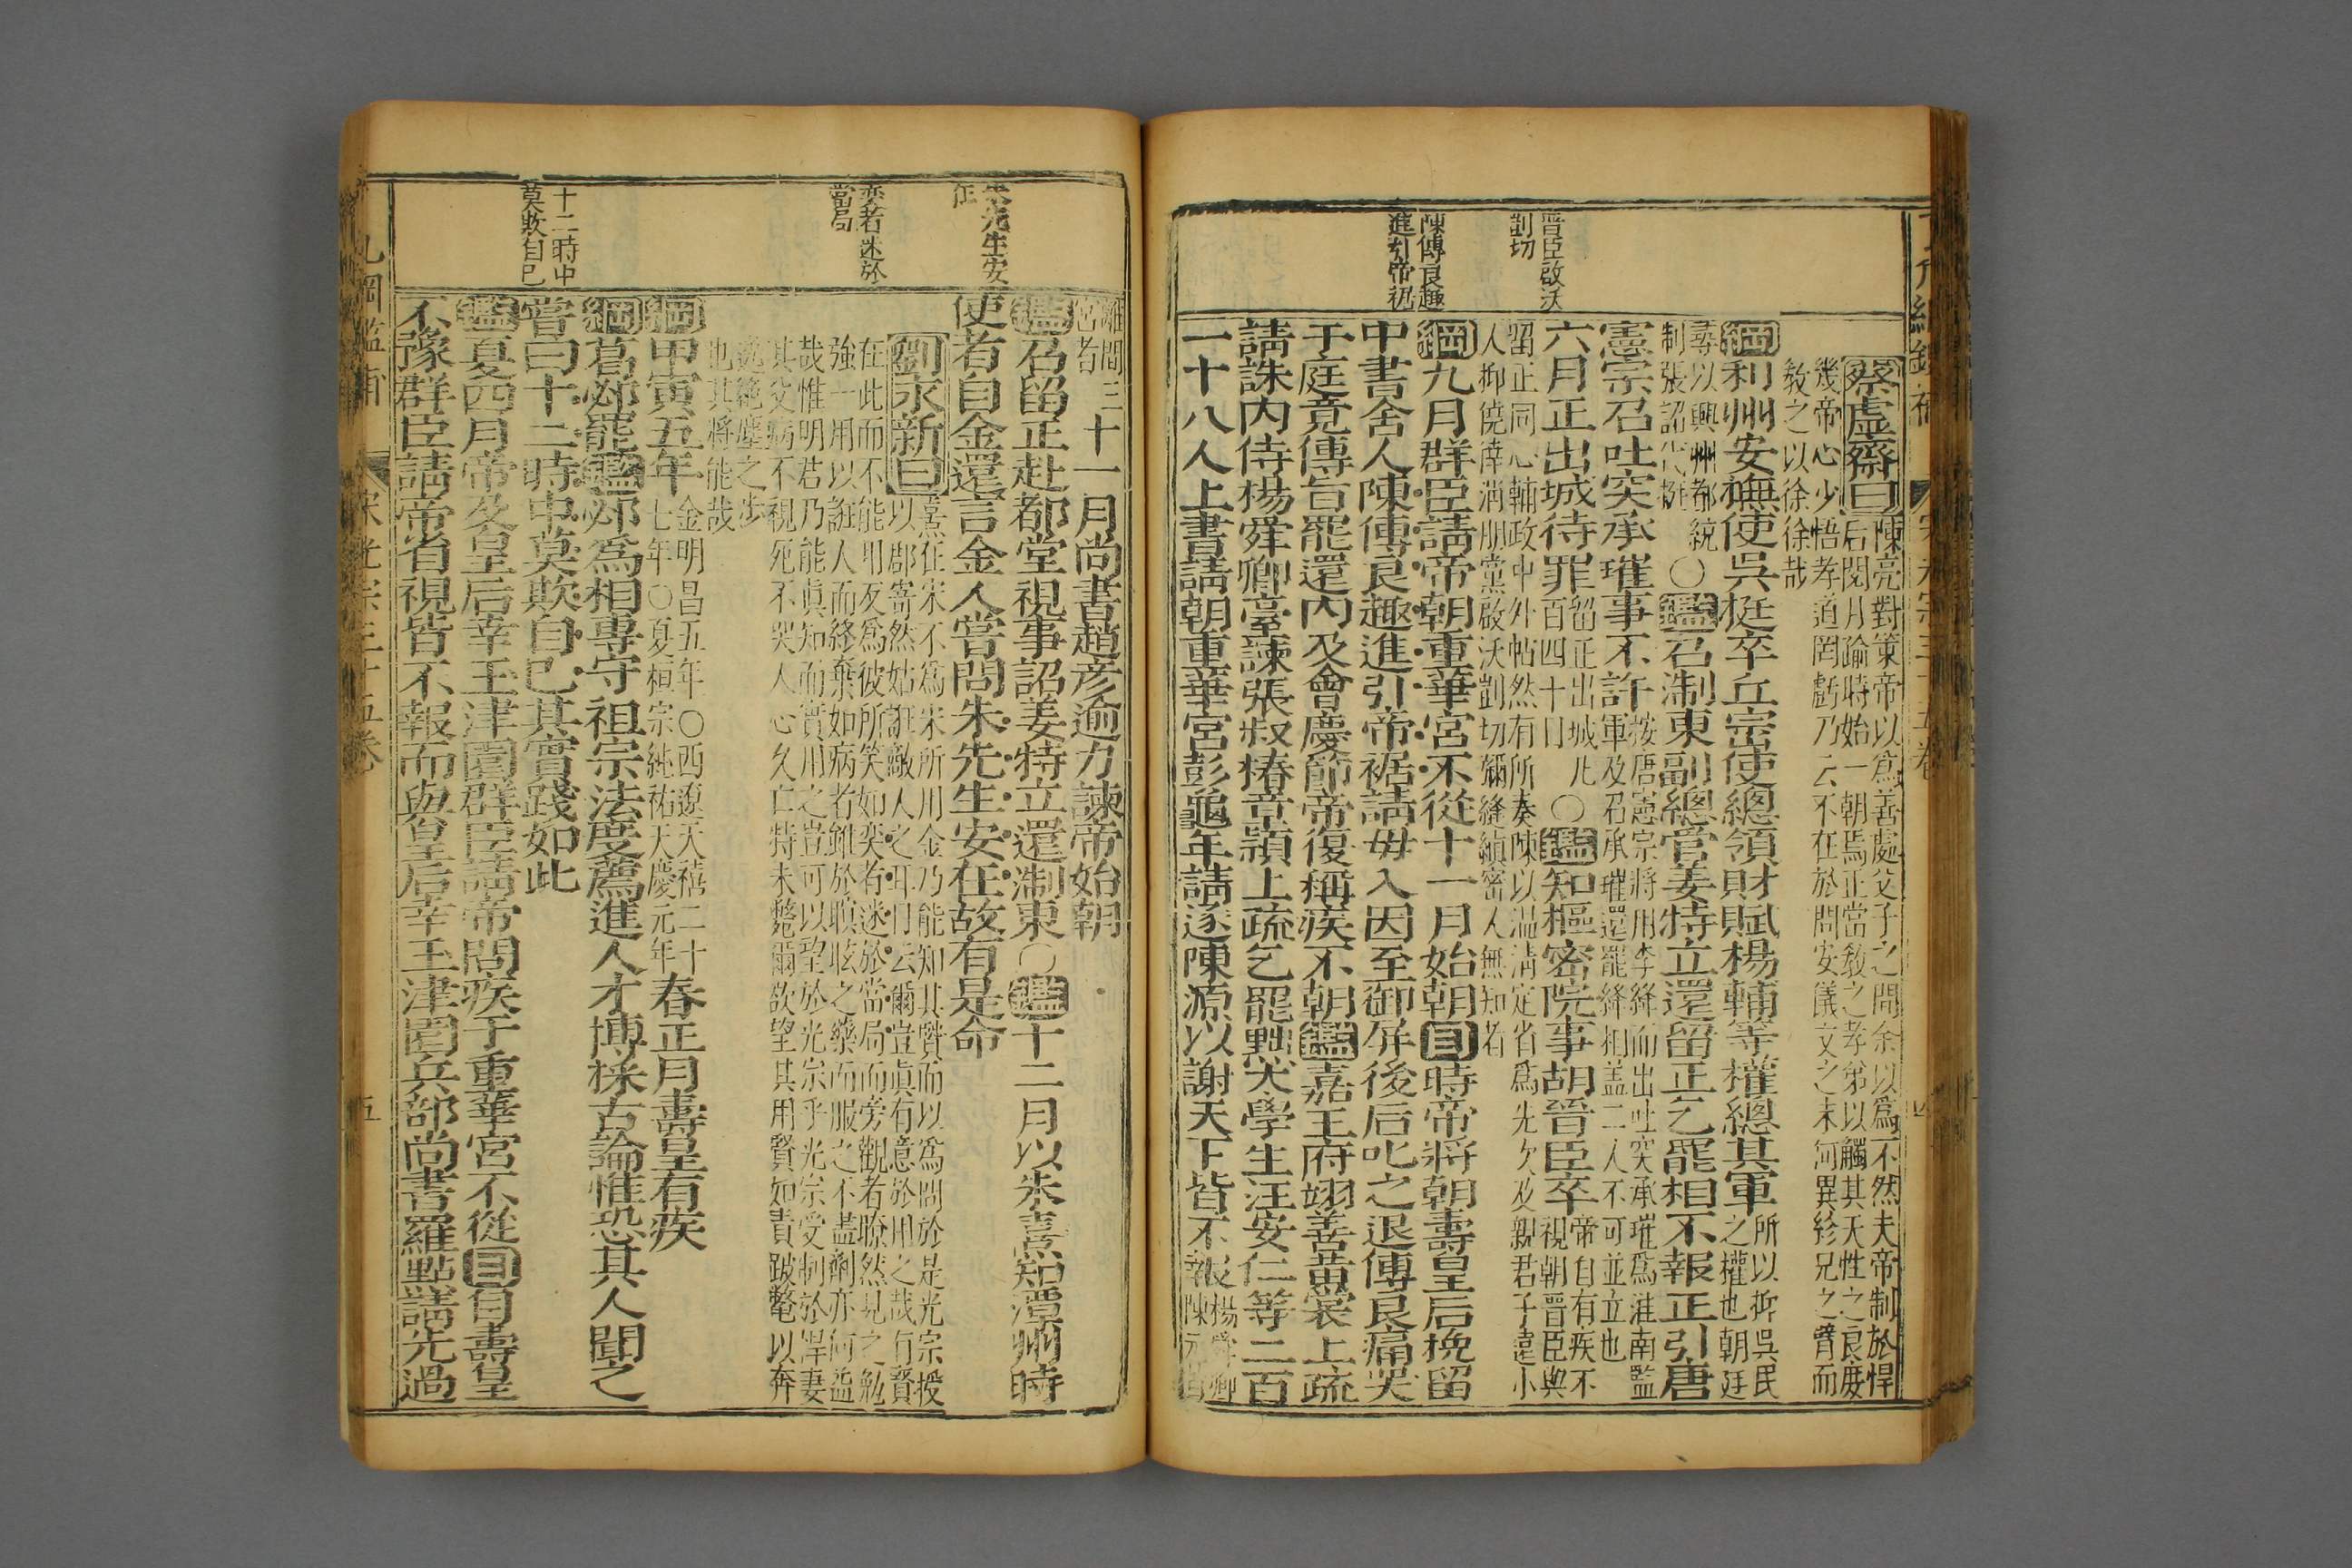 晋臣啟沃
剴切
陳傅良趣
進引帝裾
蔡虛齋曰陳亮對策帝以爲善處父子之間余以爲不然夫帝制於悍
后閱月踰時始一朝焉正當敎之孝弟以觸其天性之良庶
幾帝心少悟孝道罔虧乃云不在於問安儀文之末何異紾兄之臂而
敎之以徐徐哉
綱利州安撫使吳挺卒丘宗使總領財賦楊輔等權總其軍所以抑吳氏
之權也朝廷
尋以興州都統
制張詔代挺〇鑑召浙東副總管姜特立還留正乞罷相不報正引唐
憲宗召吐突承璀事不許按唐憲宗將用李絳而出吐突承璀爲淮南監
軍及召承璀還罷絳相蓋二人不可並立也
六月正出城待罪留正出城凡
百四十日〇鑑知樞密院事胡晉臣卒帝自有疾不
視朝晉臣與
留正同心輔政中外帖然有所奏陳以溫凊定省爲先次及親君子遠小
人抑僥倖消朋黨啟沃剴切彌縫縝密人無知者
綱九月群臣請帝朝重華宮不從十一月始朝目時帝將朝壽皇后挽留
中書舍人陳傅良趣進引帝裾請毋入因至御屏後后叱之退傅良痛哭
于庭竟傳旨罷還內及會慶節帝復稱疾不朝鑑嘉王府翊善黃裳上疏
請誅內侍楊舜卿臺諫張叔椿章穎上疏乞罷黜大學生汪安仁等二百
一十八人上書請朝重華宮彭龜年請逐陳源以謝天下皆不報楊舜卿
陳元
朱先生安
在
奕者迷於
當局
十二時中
莫欺自己
離間三
宮者十一月尚書趙彥逾力諫帝始朝
鑑召留正赴都堂視事詔姜特立還浙東〇鑑十二月以朱熹知潭州時
使者自金還言金人嘗問朱先生安在故有是命
劉永新曰熹在宋不爲宋所用金乃能知其賢而以爲問於是光宗授
以郡寄然姑誑敵人之耳目云爾豈眞有意於用之哉有賢
在此而不能用反爲彼所笑如奕者迷於當局而旁觀者瞭然見之勉
強一用以誑人而終棄如病者雖於瞑眩之藥而服之不盡劑亦何益
哉惟明君乃能眞知而實用之豈可以望於光宗乎光宗受制於悍妻
其父病不視死不哭人心久亡特未斃爾欲望其用賢如責跛鼈以奔
逸絶塵之步
也其將能哉
綱甲寅五年金明昌五年〇西遼天禧二十
七年〇夏桓宗純祐天慶元年春正月壽皇有疾
綱葛邲罷鑑邲爲相專守祖宗法度薦進人才博採古論惟恐其人聞之
嘗曰十二時中莫欺自己其實踐如此
鑑夏四月帝及皇后幸玉津園群臣請帝問疾于重華宮不從目自壽皇
不豫群臣請帝省視皆不報而與皇后幸玉津園兵部尚書羅點請先過
五